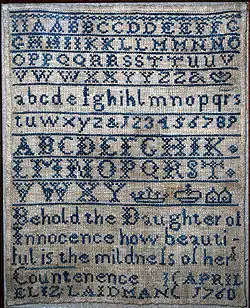 AABBCCDDEEFFG
GHHIIKKLLMMNNO
OPPQQRRSSTTUUV
VWWXXYYZZ&
abcdefghiklmnopqrs
tuwxyz&123456789
ABCDEFGHIK
LMNOPQRST
VWXYZ
Behold the Daughter of
Innocence how beauti-
ful is the mildnes of her
Countenence APRIL
ELIZ: LAIDMAN 1760